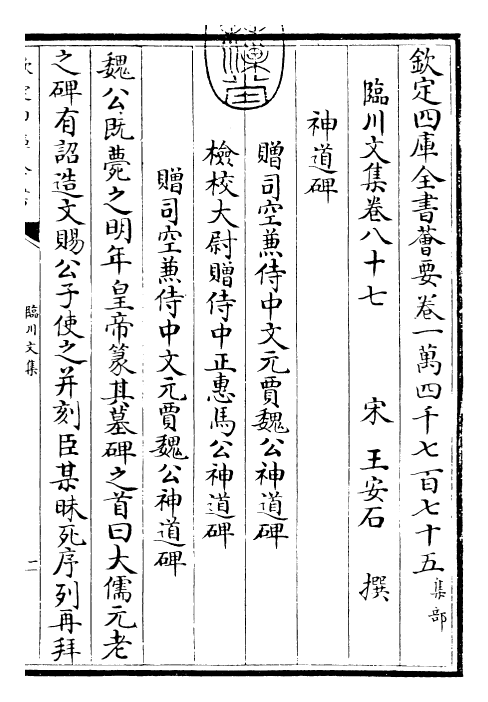 欽定四庫全書薈要卷一萬四千七百七十五 集部
臨川文集卷八十七 宋 王安石 撰
神道碑
贈司空兼侍中文元賈魏公神道碑
檢校大尉贈侍中正惠馬公神道碑
贈司空兼侍中文元賈魏公神道碑
魏公既薨之明年皇帝篆其墓碑之首曰大儒元老
之碑有詔造文賜公子使之并刻臣某昧死序列再拜
臨川文集
二